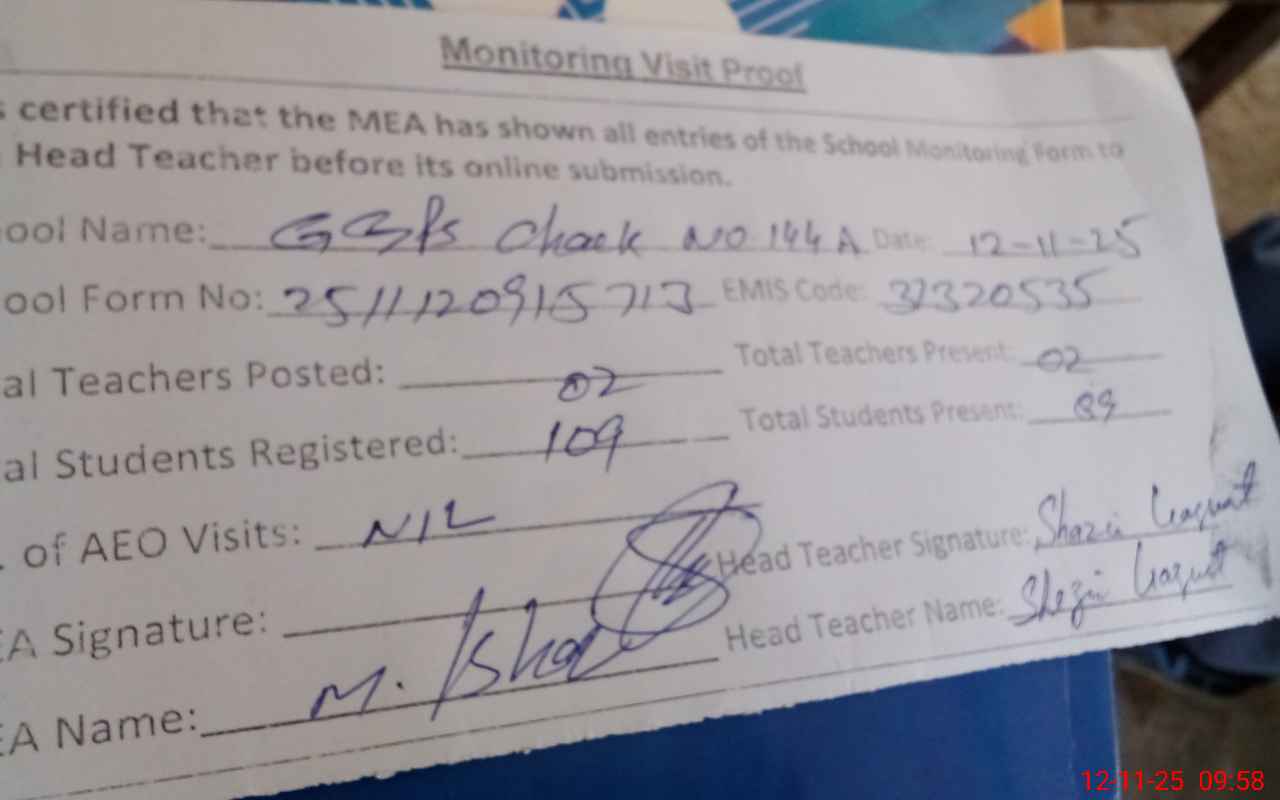 Monitoring Visit Proof
s certified that the MEA has shown all entries of the School Monitoring Form to
Head Teacher before its online submission.
ool Name: GGPS Chack NO 144 A Date: 12-11-25
ool Form No: 2511120915713 EMIS Code: 37320535
al Teachers Posted: 02 Total Teachers Present: 02
al Students Registered: 109 Total Students Present: 89
. of AEO Visits: NIL
Head Teacher Signature: Liaquat
EA Signature:
Head Teacher Name: Liaquat
EA Name: M. Ishaq
12-11-25 09:58